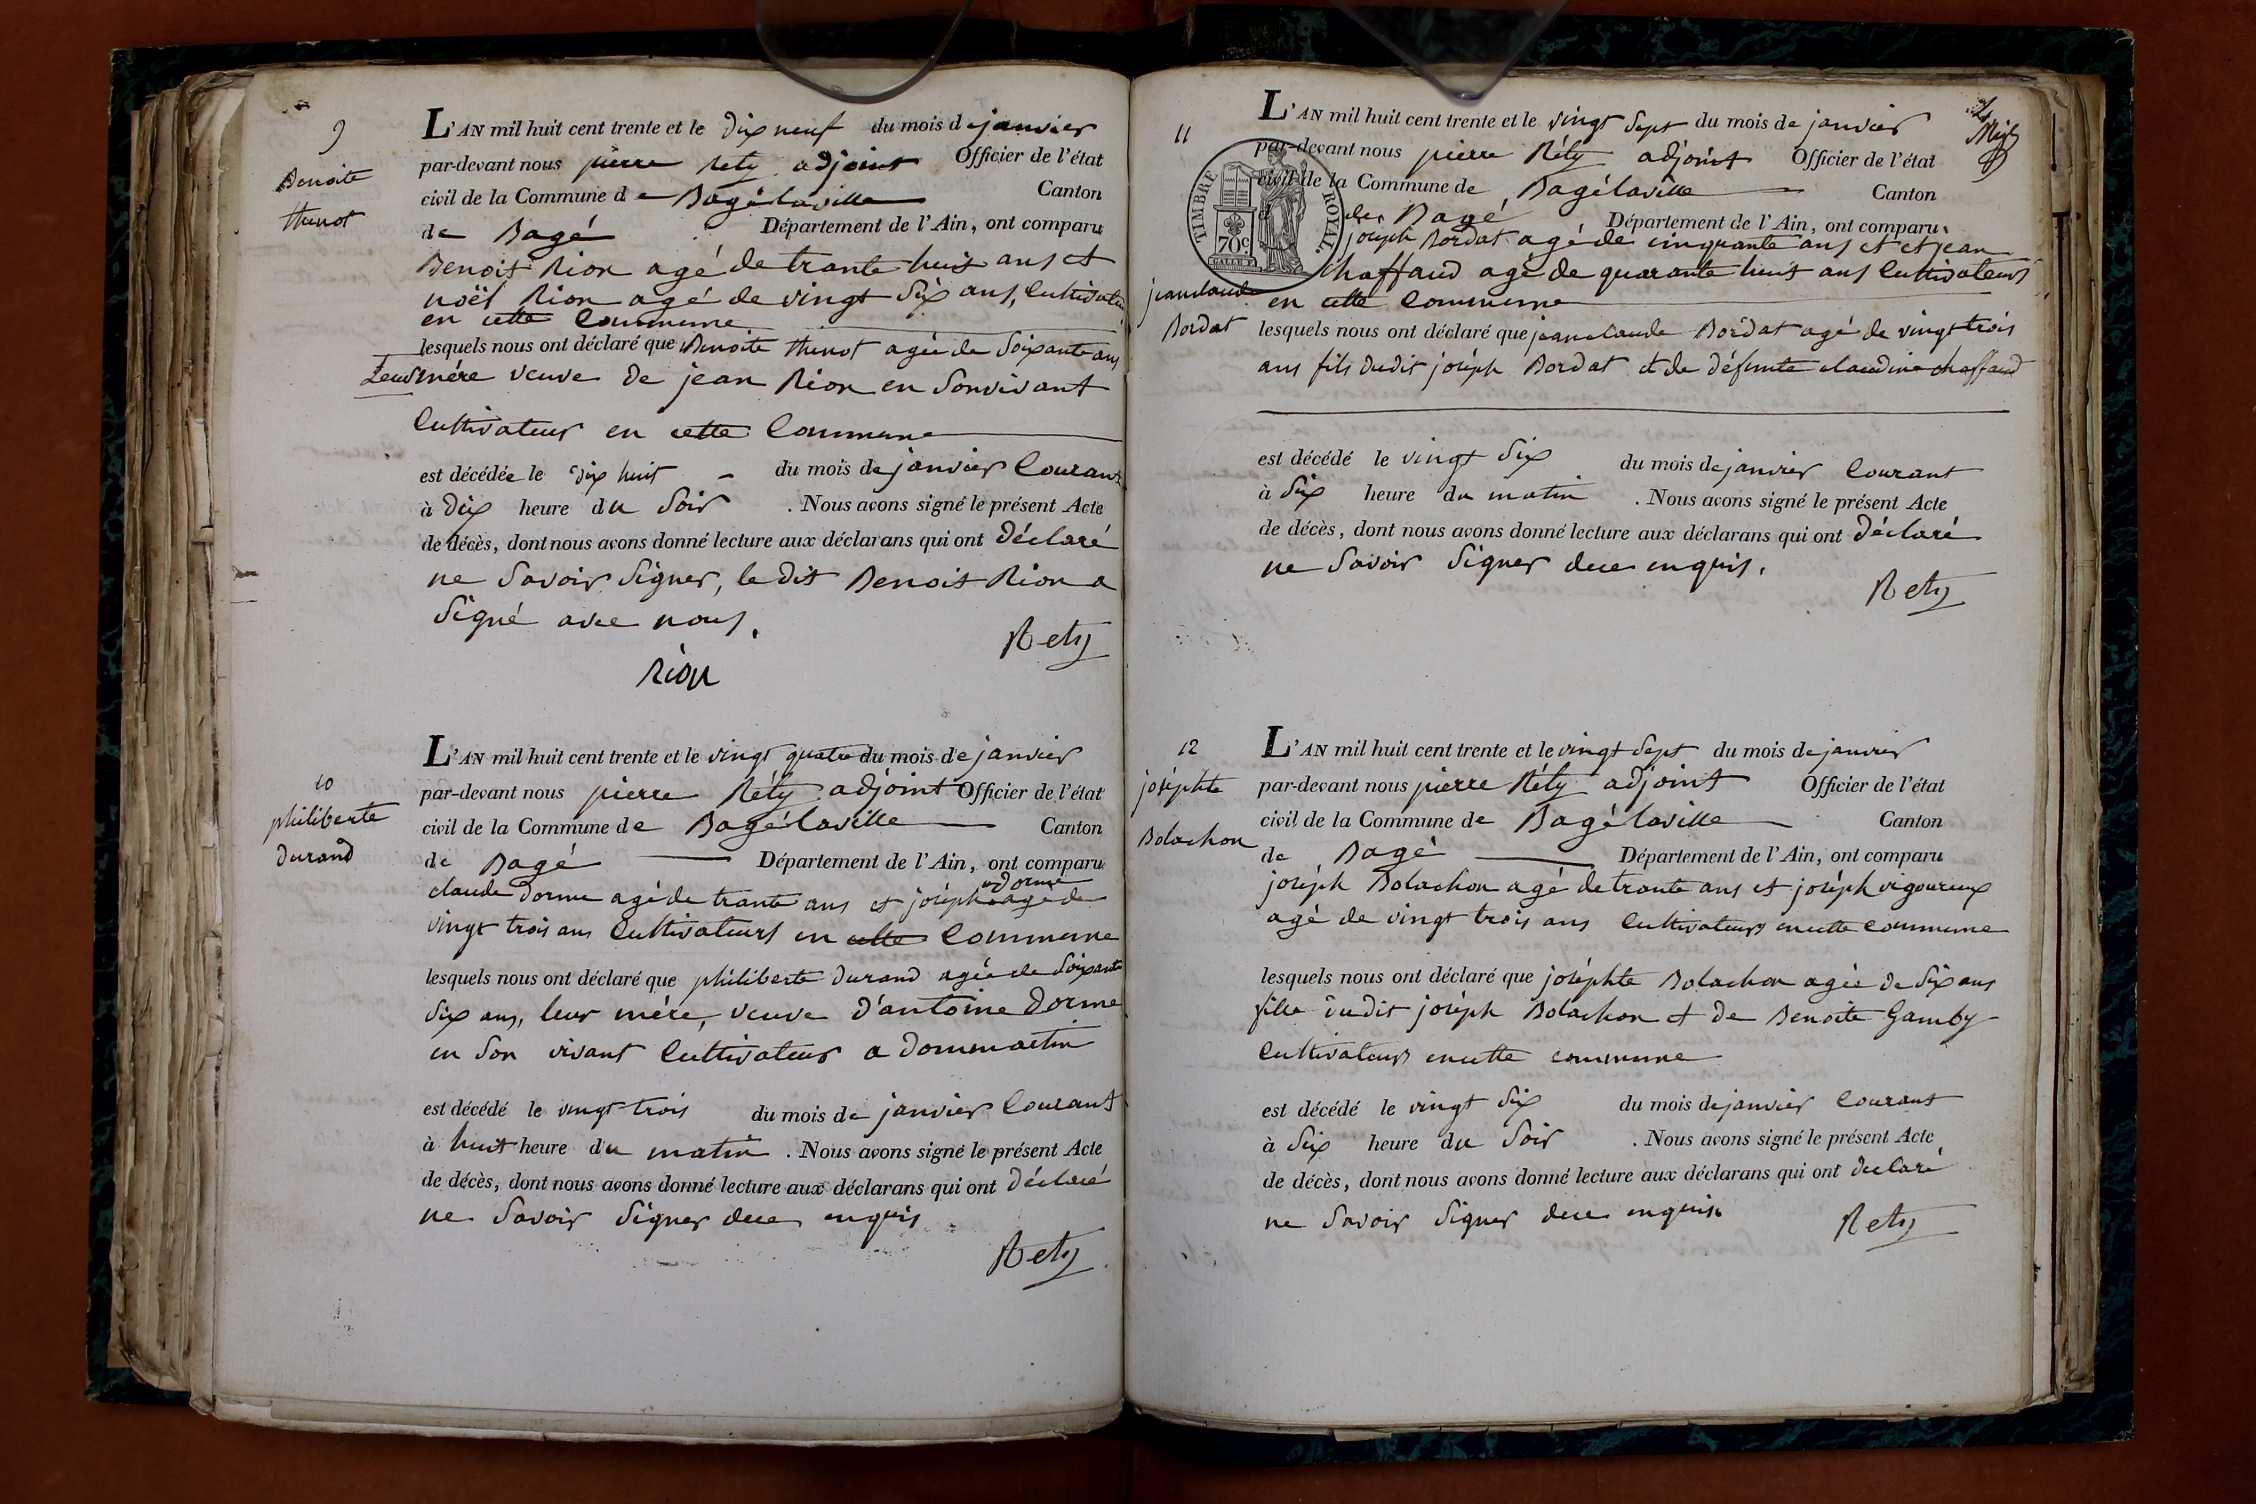 9
Benoite
thenot
L'AN mil huit cent trente et le dix neuf du mois de janvier
par-devant nous pierre Réty adjoint Officier de l'état
civil de la Commune de Bagélaville Canton
de Bagé Département de l'Ain, ont comparu
Benoit Rion agé de trante huit ans et
noël Rion agé de vingt six ans, Cultivateurs
en cette Commune
lesquels nous ont déclaré que Benoite thenot agée de Soixante ans
Leur mére veuve de jean Rion en Sonvivant
Cultivateur en cette Commune
est décédée le dix huit du mois de janvier Courant
à dix heure du Soir . Nous avons signé le présent Acte
de décès, dont nous avons donné lecture aux déclarans qui ont déclaré
ne Savoir Signer, le dit Benoit Rion a
Signé avec nous.
Rety
Rion
10
philiberte
durand
L'AN mil huit cent trente et le vingt quatre du mois de janvier
par-devant nous pierre Réty adjoint Officier de l'état
civil de la Commune de Bagélaville Canton
de Bagé Département de l'Ain, ont comparu
claude Dorme agé de trante ans et joséph Dorme agé de
vingt trois ans Cultivateurs en cette Commune
lesquels nous ont déclaré que philiberte durand agée de Soixante
Six ans, leur mére, veuve d'antoine Dorme
en Son vivant Cultivateur a dommartin
est décédé le vingt trois du mois de janvier Courant
à huit heure du matin . Nous avons signé le présent Acte
de décès, dont nous avons donné lecture aux déclarans qui ont déclaré
ne Savoir Signer dece enquis
Rety
11
jeanclaude
Bordat
TIMBRE ROYAL
70c
L'AN mil huit cent trente et le vingt Sept du mois de janvier
par-devant nous pierre Réty adjoint Officier de l'état
civil de la Commune de Bagélaville Canton
de Bagé Département de l'Ain, ont comparu
joséph Bordat agé de cinquante ans et et jean
Chaffaud agé de quarante huit ans Cultivateurs
en cette Commune
lesquels nous ont déclaré que jeanclaude Bordat agé de vingt trois
ans fils dudit joséph Bordat et de défunte claudine chaffaud
est décédé le vingt Six du mois de janvier Courant
à Six heure du matin . Nous avons signé le présent Acte
de décès, dont nous avons donné lecture aux déclarans qui ont déclaré
ne Savoir Signer dece enquis.
Rety
12
joséphte
Bolachon
L'AN mil huit cent trente et le vingt Sept du mois de janvier
par-devant nous pierre Réty adjoint Officier de l'état
civil de la Commune de Bagélaville Canton
de Bagé Département de l'Ain, ont comparu
joséph Bolachon agé de trante ans et joséph vigoureux
agé de vingt trois ans Cultivateurs encette commune
lesquels nous ont déclaré que joséphte Bolachon agée de Six ans
fille dudit joséph Bolachon et de Benoite Gamby
Cultivateurs encette commune
est décédé le vingt Six du mois de janvier Courant
à Six heure du Soir . Nous avons signé le présent Acte
de décès, dont nous avons donné lecture aux déclarans qui ont declaré
ne Savoir Signer dece enquis
Rety